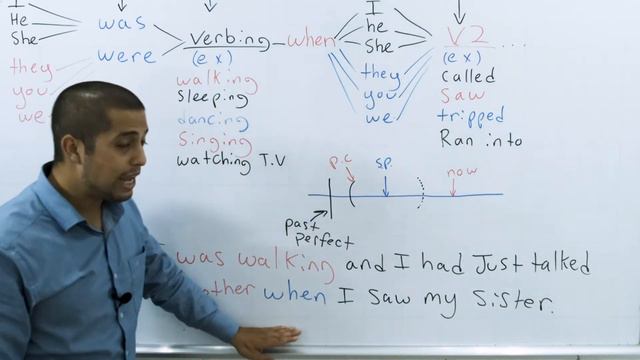 I
He
She
they
you
we
was
were
Verbing
(ex)
walking
sleeping
dancing
Singing
watching T.V
when
I
he
She
they
you
we
V2 ...
(ex)
called
Saw
tripped
Ran into
p.c s.p. now
past
perfect
was walking and I had Just talked
other when I saw my Sister.